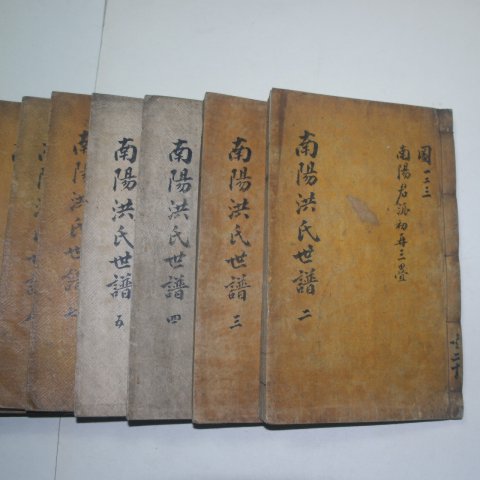 國一二三
南陽君派初再三疊
南陽洪氏世譜 二
南陽洪氏世譜 三
南陽洪氏世譜 四
南陽洪氏世譜 五
南陽洪氏世譜 七
南陽洪氏世譜